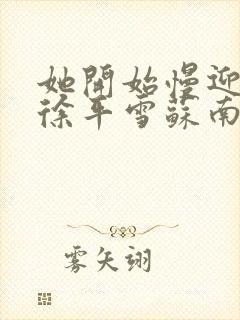 她開始慢迎
徐年雪蘇南
雾矢翊